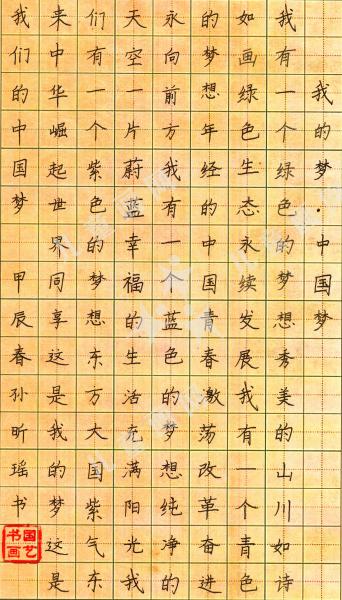 我的梦·中国梦
我有一个绿色的梦想秀美的山川如诗
如画绿色生态永续发展我有一个青色
的梦想年经的中国青春激荡改革奋进
永向前方我有一个蓝色的梦想纯净的
天空一片蔚蓝幸福的生活充满阳光我
们有一个紫色的梦想东方大国紫气东
来中华崛起世界同享这是我的梦这是
我们的中国梦 甲辰春孙昕瑶书
国艺
书画